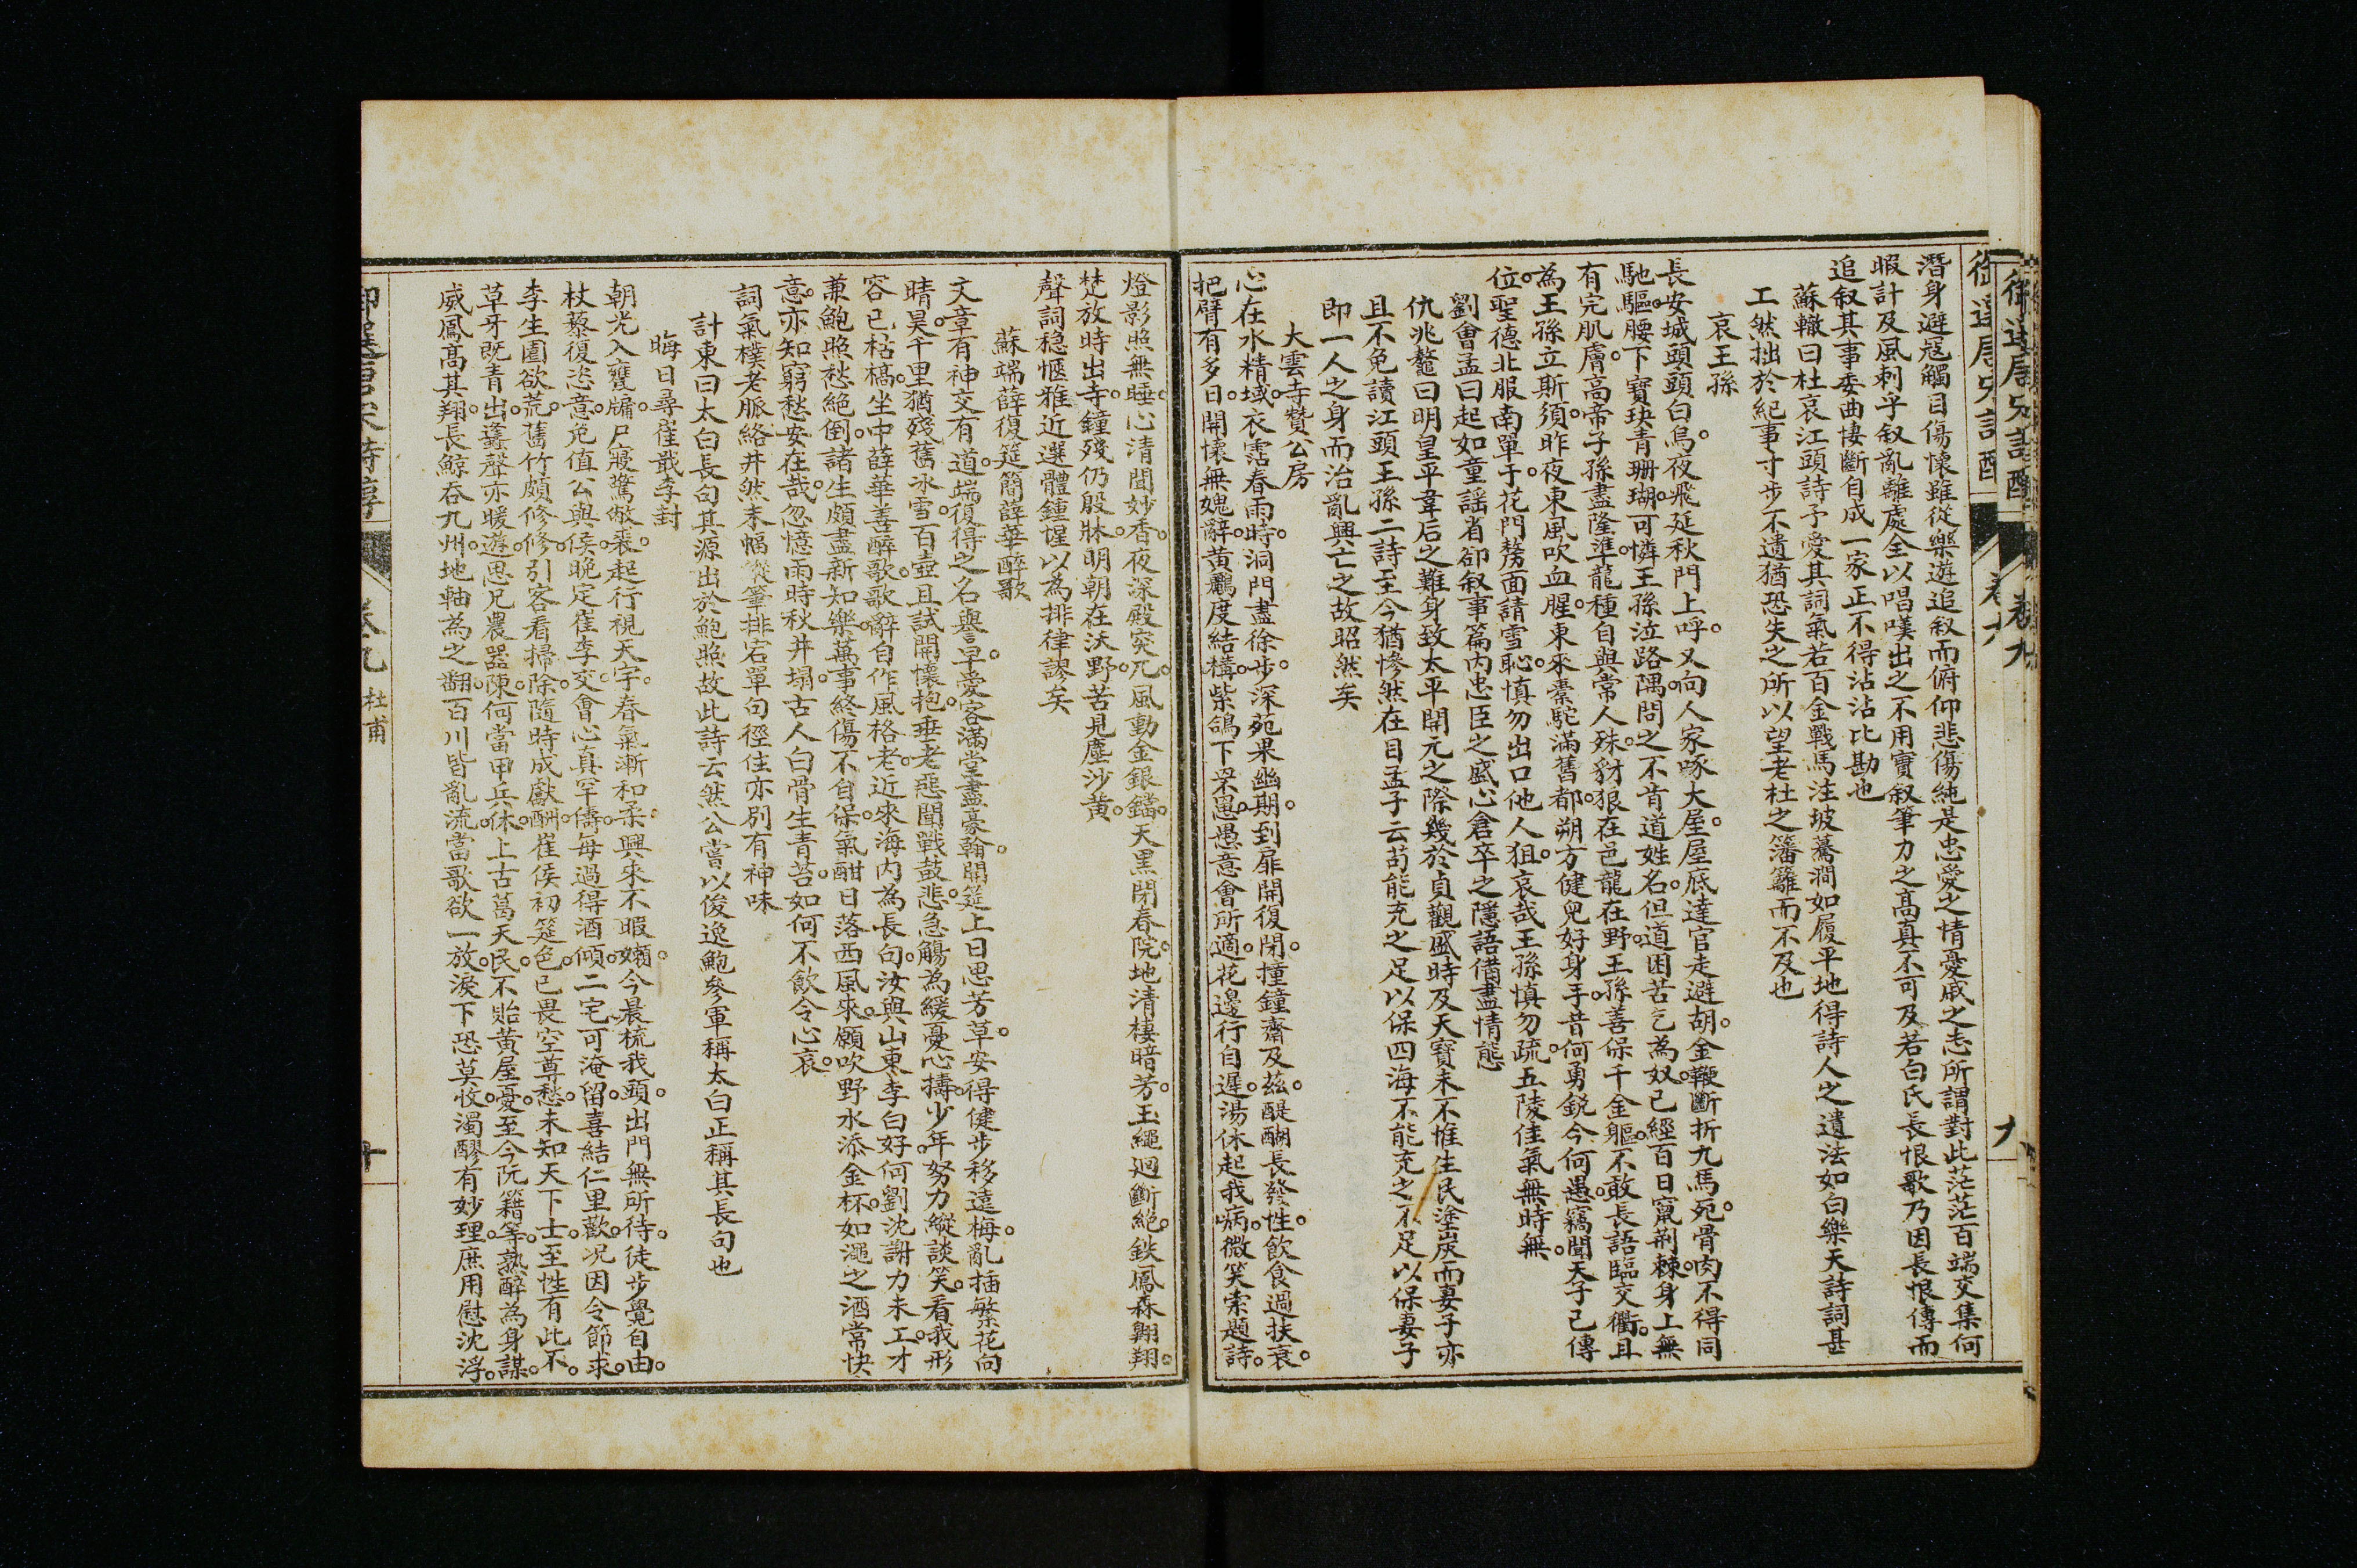 潛身避寇觸目傷懷雖從樂遊追叙而俯仰悲傷純是忠愛之情憂戚之志所謂對此茫茫百端交集何
暇計及風刺乎叙亂離處全以唱嘆出之不用實叙筆力之高真不可及若白氏長恨歌乃因長恨傳而
追叙其事委曲悽斷自成一家正不得沾沾比勘也
蘇轍曰杜哀江頭詩予愛其詞氣若百金戰馬注坡驀澗如履平地得詩人之遺法如白樂天詩詞甚
工然拙於紀事寸步不遺猶恐失之所以望老杜之籓籬而不及也
哀王孫
長安城頭頭白烏夜飛延秋門上呼又向人家啄大屋屋底達官走避胡金鞭斷折九馬死骨肉不得同
馳驅腰下寶玦青珊瑚可憐王孫泣路隅問之不肯道姓名但道困苦乞為奴已經百日竄荆棘身上無
有完肌膚高帝子孫盡隆準龍種自與常人殊豺狼在邑龍在野王孫善保千金軀不敢長語臨交衢且
為王孫立斯須昨夜東風吹血腥東來橐駝滿舊都朔方健兒好身手昔何勇鋭今何愚竊聞天子已傳
位聖德北服南單于花門剺面請雪恥慎勿出口他人狙哀哉王孫慎勿疏五陵佳氣無時無
劉會孟曰起如童謡省卻叙事篇内忠臣之盛心倉卒之隱語備盡情態
仇兆鰲曰明皇平韋后之難身致太平開元之際幾於貞觀盛時及天寶末不惟生民塗炭而妻子亦
且不免讀江頭王孫二詩至今猶慘然在目孟子云苟能充之足以保四海不能充之不足以保妻子
即一人之身而治亂興亡之故昭然矣
大雲寺贊公房
心在水精域衣霑春雨時洞門盡徐步深苑果幽期到扉開復閉撞鐘齋及茲醍醐長發性飲食過扶衰
把臂有多日開懷無媿辭黄鸝度結構紫鴿下罘罳愚意會所適花邊行自遲湯休起我病微笑索題詩
燈影照無睡心清聞妙香夜深殿突兀風動金銀鐺天黑閉春院地清棲暗芳玉繩迴斷絶鉄鳳森翱翔
梵放時出寺鐘殘仍殷牀明朝在沃野苦見塵沙黄
聲詞穩愜雅近選體鍾惺以為排律謬矣
蘇端薛復筵簡薛華醉歌
文章有神交有道端復得之名譽早愛客滿堂盡豪翰開筵上日思芳草安得健步移遠梅亂插繁花向
晴昊千里猶殘舊冰雪百壺且試開懷抱垂老惡聞戰鼓悲急觴為緩憂心擣少年努力縱談笑看我形
容已枯槁坐中薛華善醉歌歌辭自作風格老近來海内為長句汝與山東李白好何劉沈謝力未工才
兼鮑照愁絶倒諸生頗盡新知樂萬事終傷不自保氣酣日落西風來願吹野水添金杯如澠之酒常快
意亦知窮愁安在哉忽憶雨時秋井塌古人白骨生青苔如何不飲令心哀
詞氣樸老脈絡井然末幅縱筆排宕單句徑住亦别有神味
計東曰太白長句其源出於鮑照故此詩云然公嘗以俊逸鮑參軍稱太白正稱其長句也
晦日尋崔戢李封
朝光入甕牖尸寢驚敝裘起行視天宇春氣漸和柔興來不暇嬾今晨梳我頭出門無所待徒步覺自由
杖藜復恣意免值公與侯晚定崔李交會心真罕儔每過得酒傾二宅可淹留喜結仁里歡况因令節求
李生園欲荒舊竹頗修修引客看掃除隨時成獻酬崔侯初筵色已畏空尊愁未知天下士至性有此不
草牙既青出蜂聲亦暖遊思見農器陳何當甲兵休上古葛天民不貽黄屋憂至今阮籍等熟醉為身謀
威鳳高其翔長鯨吞九州地軸為之翻百川皆亂流當歌欲一放淚下恐莫收濁醪有妙理庶用慰沈浮
御選唐宋詩醇
卷九
杜甫
十